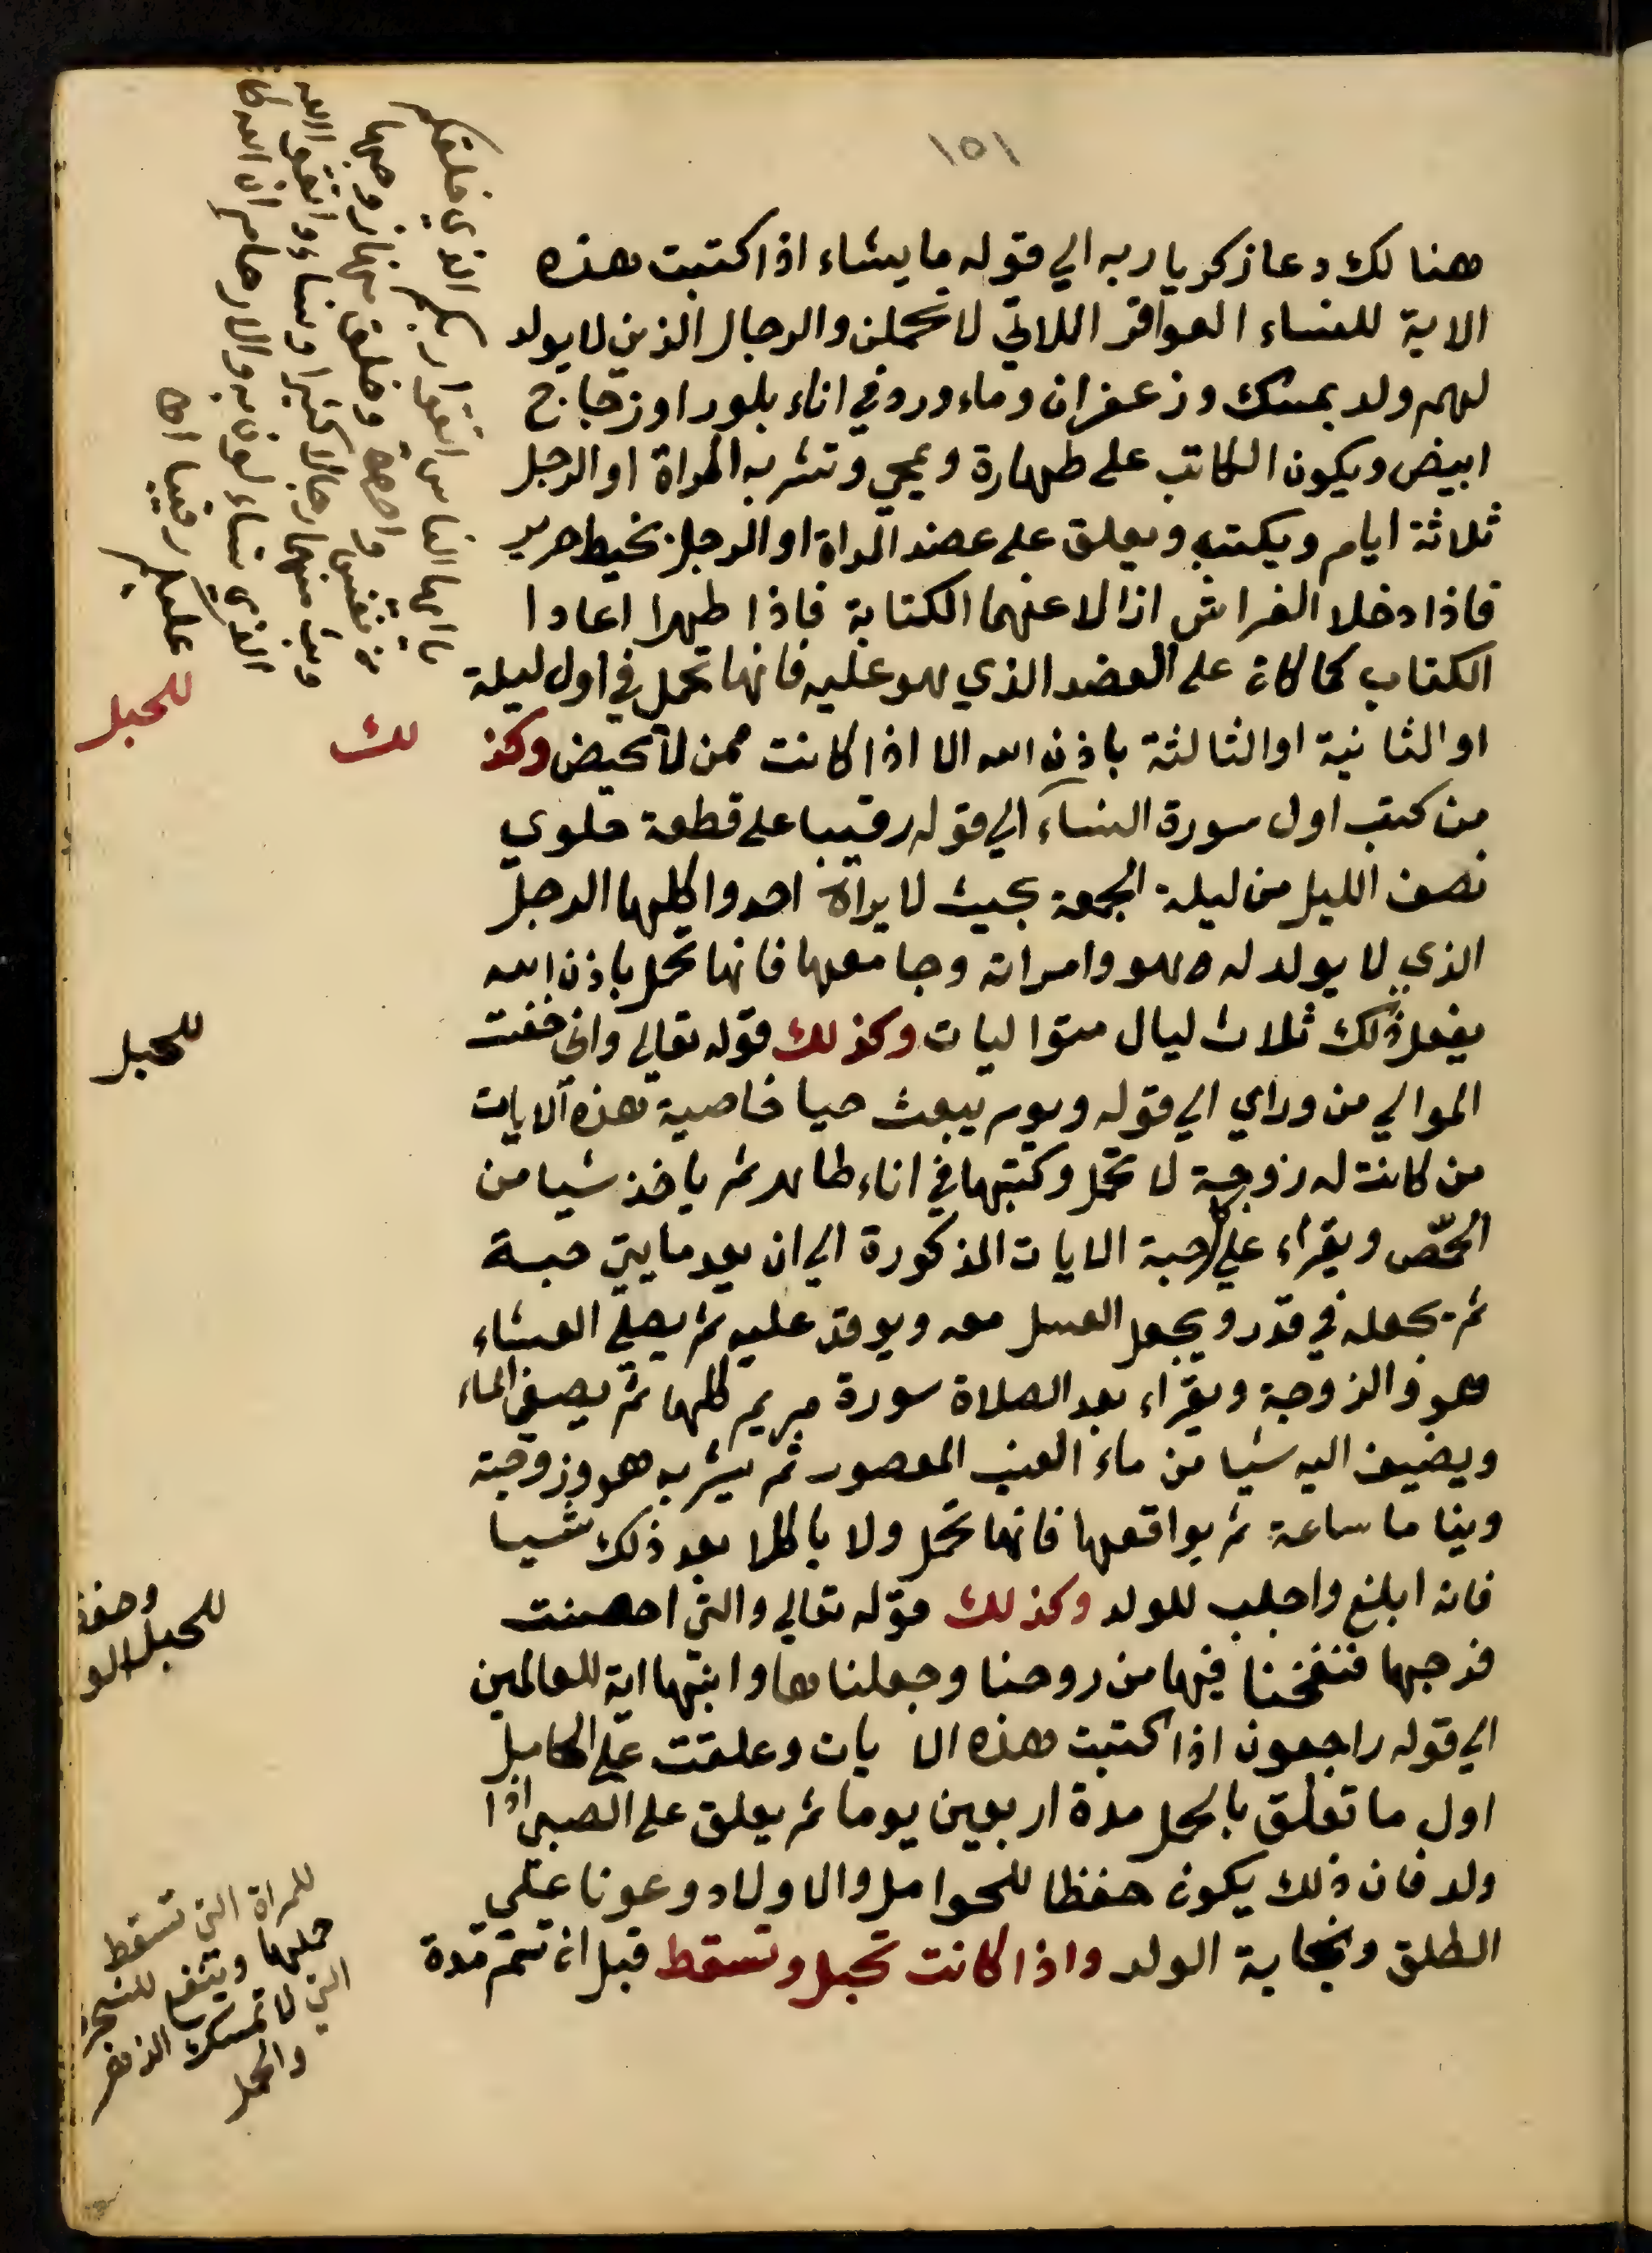 ١٥١
هنالك دعا زكريا ربه الي قوله ما يشاء اذا كتبت هذه
الاية للنساء العواقر اللاتي لا تحملن والرجال الذين لا يولد
لهم ولد بمسك وزعفران وماء ورد في اناء بلور او زجاج
ابيض ويكون الكاتب على طهارة ويمحي وتشربه المراة او الرجل
ثلاثة ايام ويكتب ويعلق على عضد المراة او الرجل بخيط حرير
فاذا دخلا الفراش ازالا عنهما الكتابة فاذا طهرا اعادا
الكتاب كما كان على العضد الذي هو عليه فانها تحمل في اول ليلة
او الثانية او الثالثة باذن الله الا اذا كانت ممن لا تحيض وكذ لك
من كتب اول سورة النساء الي قوله رقيبا على قطعة حلوي
نصف الليل من ليلة الجمعة بحيث لا يراه احد واكلها الرجل
الذي لا يولد له هو وامراته وجامعها فانها تحمل باذن الله
يفعل ذلك ثلاث ليال متواليات وكذلك قوله تعالي واني خفت
الموالي من وراي الي قوله ويوم يبعث حيا خاصية هذه الايات
من كانت له زوجة لا تحمل وكتبها في اناء طاهر ثم ياخذ شيا من
الحمّص ويقراء علي كل حبة الايات المذكورة الي ان يعد مايتي حبة
ثم يجعله في قدر ويجعل العسل معه ويوقد عليه ثم يصلي العشاء
هو والزوجة ويقراء بعد الصلاة سورة مريم كلها ثم يصفي الماء
ويضيف اليه شيا من ماء العنب المعصور ثم يشربه هو وزوجته
ويناما ساعة ثم يواقعها فانها تحمل ولا ياكلا بعد ذلك شيا
فانه ابلغ واجلب للولد وكذلك قوله تعالي والتي احصنت
فرجها فنفخنا فيها من روحنا وجعلناها وابنها اية للعالمين
الي قوله راجعون اذا كتبت هذه الا يات وعلقت على الحامل
اول ما تعلق بالحمل مدة اربعين يوما ثم يعلق على الصبي اذا
ولد فان ذلك يكون حفظا للحوامل والاولاد وعونا علي
الطلق ونجابة الولد واذا كانت تحبل وتسقط قبل ان تتم مدة
يا ايها الناس اتقوا ربكم الذي خلقكم
من نفس واحدة وخلق منها زوجها
وبث منهما رجالا كثيرا ونساء واتقوا الله
الذي تساءلون به والارحام ان الله كان
عليكم رقيبا
للحبل
للحبل
للحبل
للمراة التي تسقط
حملها وينفع
التي لا تمسك الزهر
والحمل